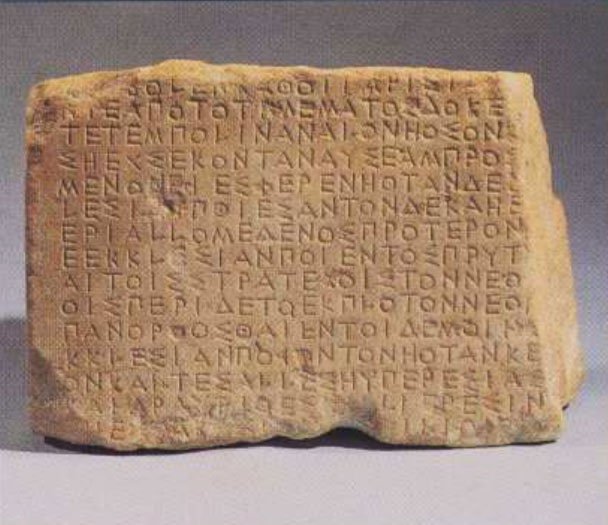 ΒΟΛΕΝΚΑΘΟΤΙΑΡΙΣΤ
ΝΤΕΑΠΟΤΟΤΙΜΕΜΑΤΟΣΔΟΚΕ
ΤΕΤΕΜΠΟΛΙΝΑΝΑΛΟΝΗΟΣΟΝ
ΣΗΕΧΣΕΚΟΝΤΑΝΑΥΣΕΑΜΠΡΟ
ΜΕΝΟΣΕΙΕΣΦΕΡΕΝΗΟΤΑΝΔΕ
ΛΕΣΙΑΝΠΟΙΕΣΑΝΤΟΝΔΕΚΑΗΕ
ΕΡΙΑΛΛΟΜΕΔΕΝΟΣΠΡΟΤΕΡΟΝ
ΕΕΚΚΛΕΣΙΑΝΠΟΙΕΝΤΟΣΠΡΥΤ
ΑΙΤΟΙΣΣΤΡΑΤΕΓΟΙΣΤΟΝΝΕΟ
ΟΙΣΠΕΡΙΔΕΤΟΕΚΠΛΟΤΟΝΝΕΟ
ΠΑΝΟΡΘΟΣΘΑΙΕΝΤΟΙΔΕΜΟΙΗ
ΚΚΛΕΣΙΑΝΠΟΙΟΝΤΟΝΗΟΤΑΝΚΕ
ΟΝΚΑΙΤΕΣΑΛΛΕΣΗΥΠΕΡΕΣΙΑΣ